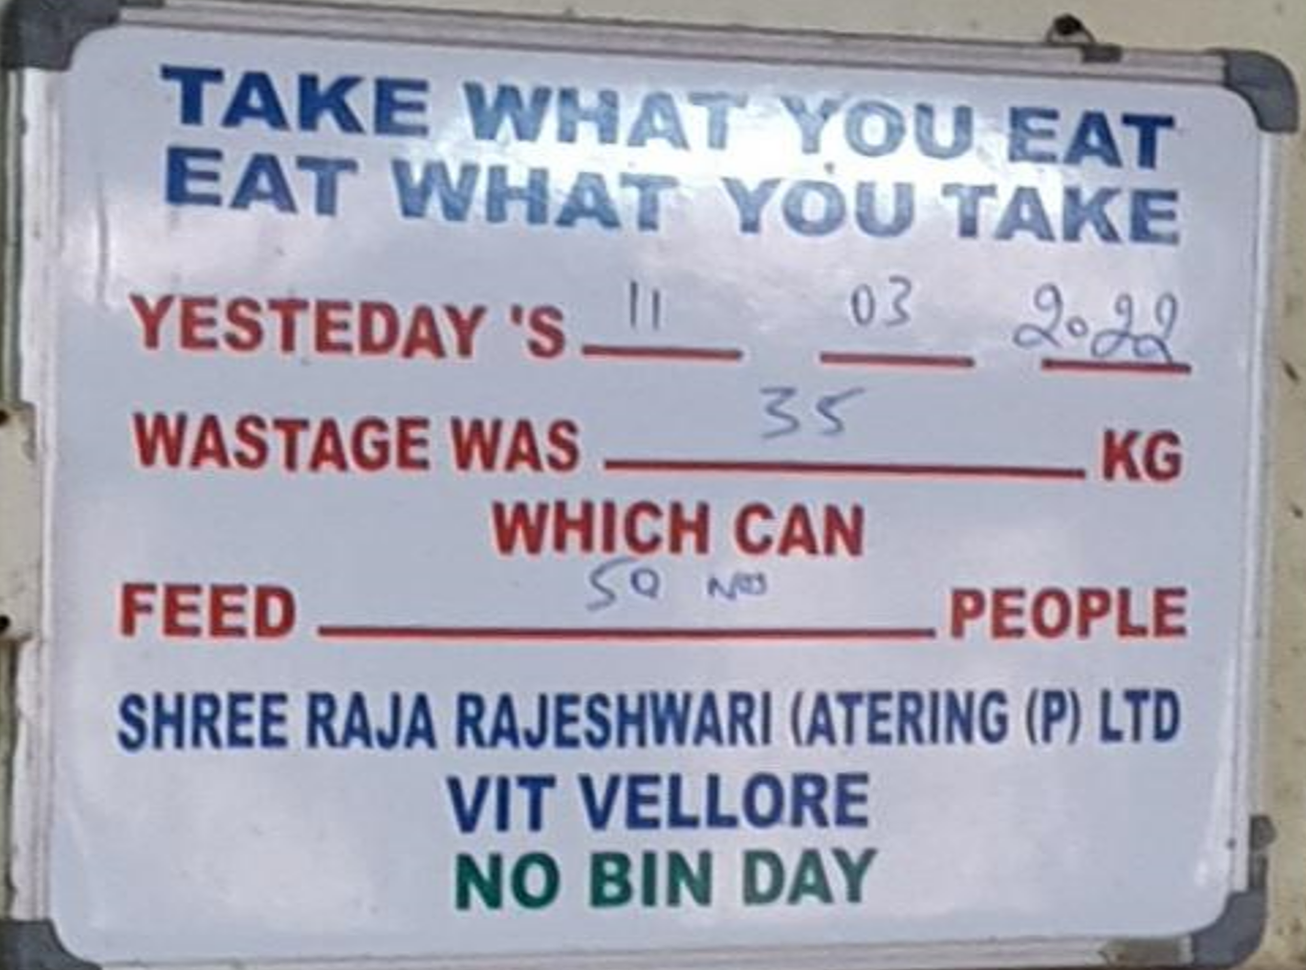 TAKE WHAT YOU EAT
EAT WHAT YOU TAKE
YESTEDAY 'S 11 03 2022
WASTAGE WAS 35 KG
WHICH CAN
FEED 50 Nos PEOPLE
SHREE RAJA RAJESHWARI (ATERING (P) LTD
VIT VELLORE
NO BIN DAY